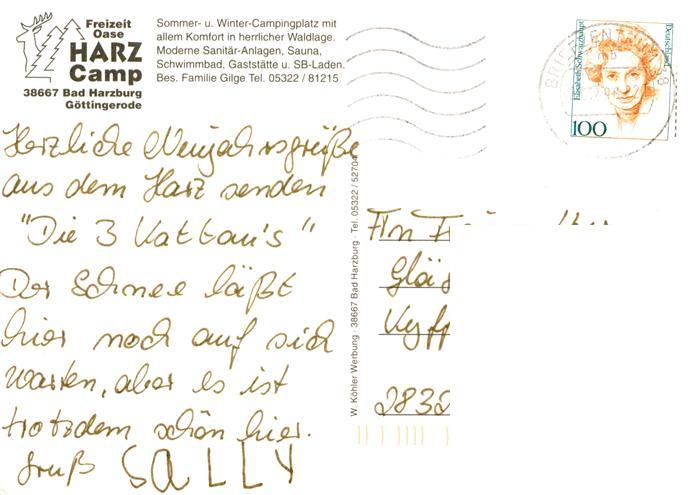 Freizeit
Oase
HARZ
Camp
38667 Bad Harzburg
Göttingerode
Sommer- u. Winter-Campingplatz mit
allem Komfort in herrlicher Waldlage.
Moderne Sanitär-Anlagen, Sauna,
Schwimmbad, Gaststätte u. SB-Laden.
Bes. Familie Gilge Tel. 05322 / 81215
Herzliche Neujahrsgrüße
aus dem Harz senden
"Die 3 Kattau's"
Der Schnee läßt
hier noch auf sich
warten, aber es ist
trotzdem schön hier.
Gruß SALLY
W. Köhler Werbung · 38667 Bad Harzburg · Tel. 05322 / 52704
Elisabeth Schwarzhaupt
Deutschland
100
BRIEFZENTRUM 38
An
2832